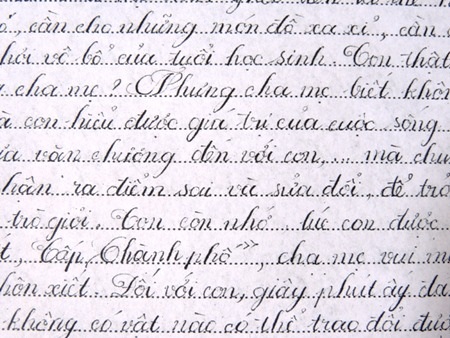 cần cho những món đồ xa xỉ, cần
vô bổ của tuổi học sinh. Con thật
cha mẹ? Nhưng cha mẹ biết không
con hiểu được giá trị của cuộc sống
văn chương đến với con, ... mà
nhận ra điểm sai và sửa đổi, để trở
trò giỏi. Con còn nhớ lúc con được
Cấp Thành phố", cha mẹ vui
xiết. Đối với con, giây phút ấy
không có vật nào có thể trao đổi được